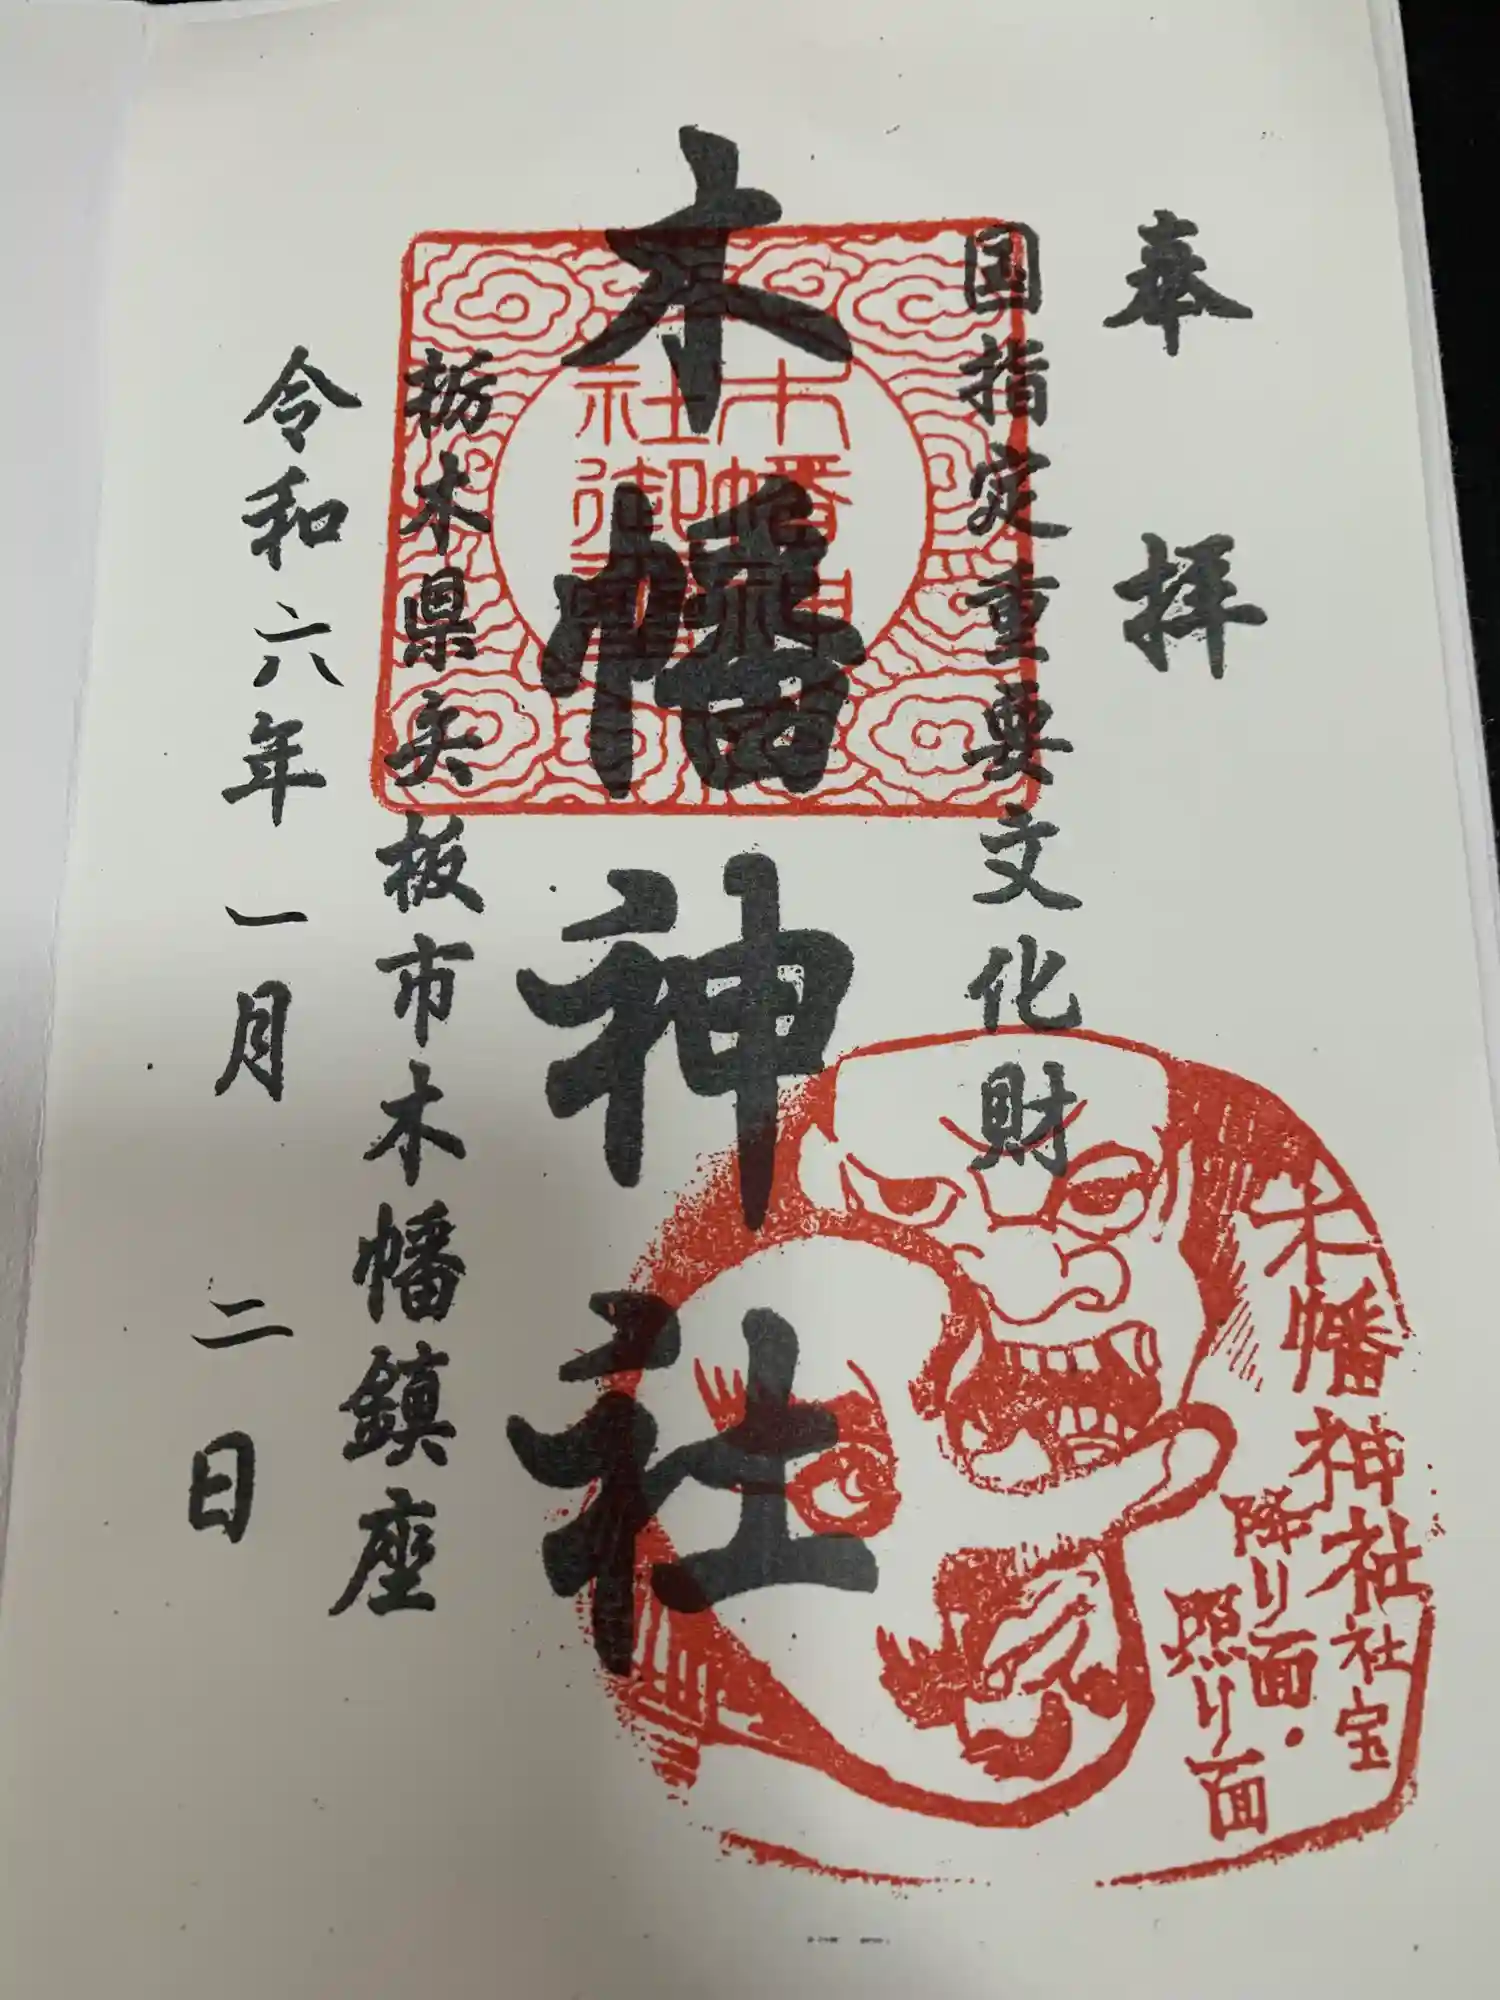 奉拝
国指定重要文化財
木幡神社
木幡神社御璽
栃木県矢板市木幡鎮座
令和六年一月二日
木幡神社社宝
降り面・
照り面